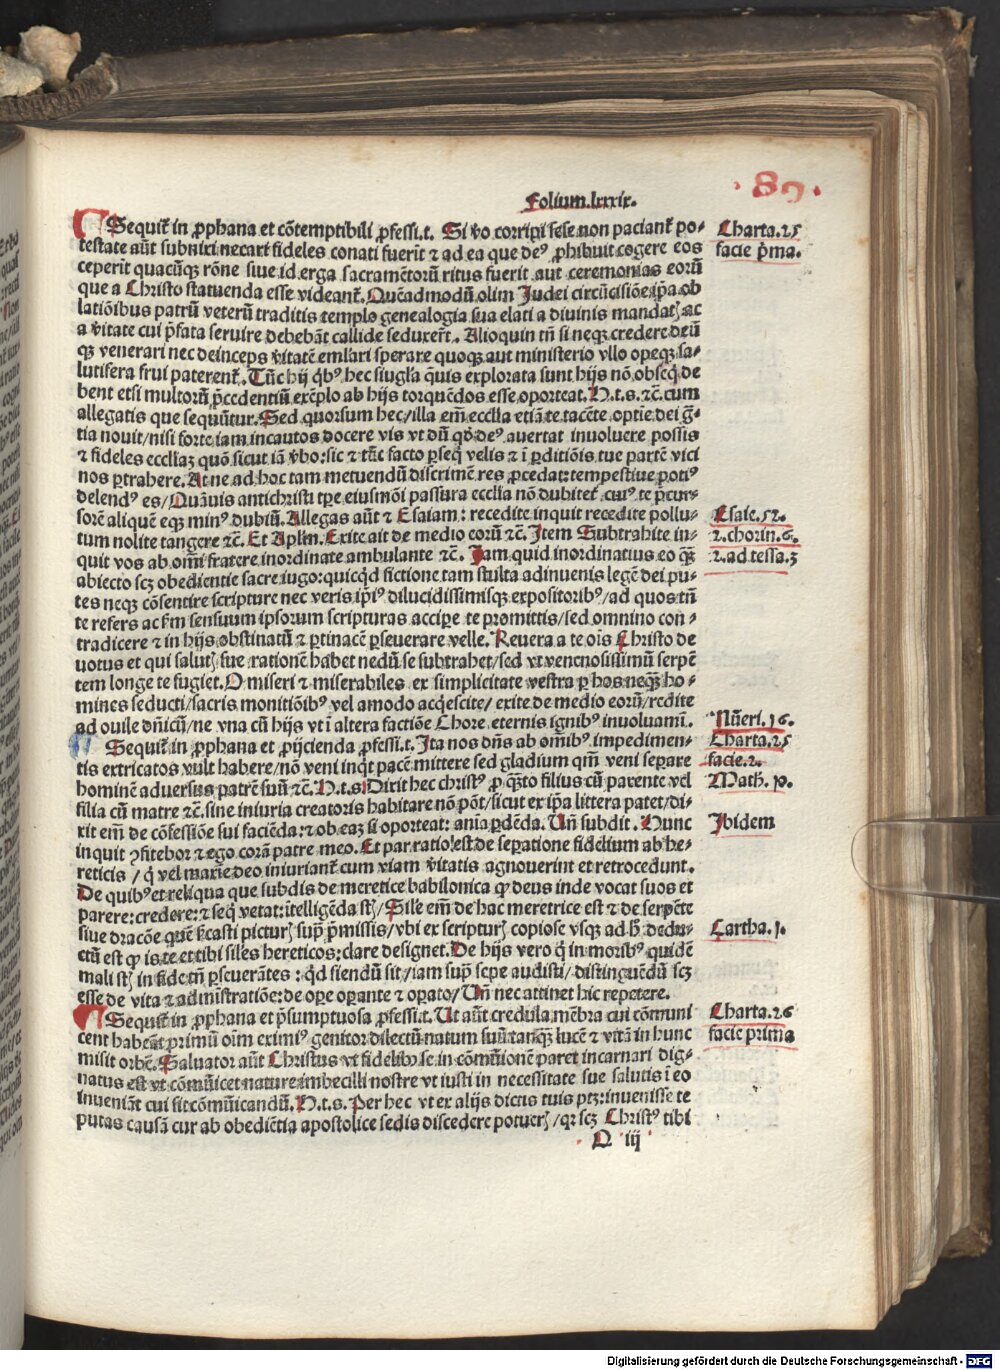 Folium.lxxix.
89
Sequit᷑ in ꝓphana et cõtemptibili ꝓfessi.t. Si v̊o corripi sese non paciant᷑ po-
testate aũt subnixi necare fideles conati fuerit ⁊ ad ea que deꝰ ꝓhibuit cogere eos
ceperit quacũqꝫ rõne siue id erga sacramẽtorũ ritus fuerit aut ceremonias eorũ
que a Christo statuenda esse videant᷑. Quẽadmodũ olim Judei circũcisiõe ip̃a ob
latiõibus patrũ veterũ traditis templo genealogia sua elati a diuinis mandatꝭ ac
a v̊itate cui p̃fata seruire debebãt callide seduxer̃t. Alioquin tñ si neqꝫ credere deũ
qꝫ venerari nec deinceps v̊itatẽ emlari sperare quoqꝫ aut ministerio vllo opeqꝫ sa-
lutifera frui paterent᷑. Tũc hij qͥbꝰ hec siugl'a q̃uis explorata sunt hijs nõ obseqͥ de
bent etsi multorũ p̃cedentiũ exẽplo ab hijs torquẽdos esse oporteat. N.t.s. ⁊c̃. cum
allegatis que sequũtur. Sed quorsum hec/illa em̃ eccl̃ia etiã te tacẽte optie dei g̃-
tia nouit/nisi forte iam incautos docere vis vt dũ qd̛ deꝰ auertat inuoluere possis
⁊ fideles eccl̃iaꝫ quõ sicut iã v̊bo: sic ⁊ tũc facto ꝑseqͥ velis ⁊ ĩ ꝑditiõis tue partẽ vici
nos ꝑtrahere. At ne ad hoc tam metuendũ discrimẽ res ꝓcedat: tempestiue potiꝰ
delendꝰ es/Quãuis antichristi tꝑe eiusmõi passura eccl̃ia nõ dubitet᷑ cuiꝰ te p̃cur-
sorẽ aliquẽ eqꝫ minꝰ dubiũ. Allegas aũt ⁊ Esaiam: recedite inquit recedite pollu-
tum nolite tangere ⁊c̃. Et Apl̃m. Exite ait de medio eorũ ⁊c̃. Item Subtrahite in-
quit vos ab om̃i fratere inordinate ambulante ⁊c̃. Jam quid inordinatius eo q̃ꝫ
abiecto scꝫ obedientie sacre iugo: quicqͥd fictione tam stulta adinuenis legẽ dei pu-
tes neqꝫ cõsentire scripture nec veris ip̃iꝰ dilucidissimisqꝫ expositoribꝰ/ad quos tñ
te refers ac fm̃ sensuum ipsorum scripturas accipe te promittis/sed omnino con-
tradicere ⁊ in hijs obstinatũ ⁊ ꝑtinacẽ ꝑseuerare velle. Reuera a te ois Christo de
uotus et qui salutꝭ sue rationẽ habet nedũ se subtrahet/sed vt venenosissimũ serpẽ
tem longe te fugiet. O miseri ⁊ miserabiles ex simplicitate vestra ꝑ hos neq̃ꝫ ho-
mines seducti/sacris monitiõibꝰ vel amodo acq̃escite/exite de medio eorũ/redite
ad ouile dñicũ/ne vna cũ hijs vt ĩ altera factiõe Chore eternis ignibꝰ inuoluamĩ.
Sequit᷑ in ꝓphana et ꝓijcienda ꝓfessi.t. Ita nos dñs ab om̃ibꝰ impedimen-
tis extricatos vult habere/nõ veni inqͥt pacẽ mittere sed gladium qm̃ veni separe
hominẽ aduersus patrẽ suũ ⁊c̃. N.t.s. Dixit hec christꝰ ꝓ q̃ꝫto filius cũ parente vel
filia cũ matre ⁊c̃. sine iniuria creatoris habitare nõ põt/sicut ex ip̃a littera patet/di-
xit em̃ de cõfessiõe sui faciẽda: ⁊ ob eaꝫ si oporteat: anĩa ꝑdẽda. Uñ subdit. Hunc
inquit ꝯfitebor ⁊ ego corã patre meo. Et par ratio est de sepatione fidelium ab he-
reticis/qͥ vel maxie deo iniuriant᷑ cum viam v̊itatis agnouerint et retrocedunt.
De quibꝰ et reliqua que subdis de meretrice babilonica qꝙ deus inde vocat suos et
parere: credere: ⁊ seqͥ vetat: ĩtelligẽda sꝭ/Sile em̃ de hac meretrice est ⁊ de serpẽte
siue dracõe quẽ fꝛcasti picturꝭ suꝑ p̃missis/vbi ex scripturꝭ copiose vsqꝫ ad lr̃ dedu-
ctũ est ꝙ is te et tibi siles hereticos: clare designet. De hijs vero qͥ in moribꝰ quidẽ
mali sꝭ in fide tñ ꝑseuerãtes: qͥd siendũ sit/iam suꝑ sepe audisti/distinguẽdũ scꝫ
esse de vita ⁊ admĩstratiõe: de oꝑe oꝑante ⁊ oꝑato/Uñ nec attinet hic repetere.
Sequit᷑ in ꝓphana et p̃sumptuosa ꝓfessi.t. Ut aũt credula mẽbra cui cõmuni
cent habeãt primũ oim eximiꝰ genitor dilectũ natum suũ tanq̃ꝫ lucẽ ⁊ vitã in hunc
misit orbẽ. Saluator aũt Christus vt fidelibꝰ se in cõmũionẽ paret incarnari dig-
natus est vt cõmũicet nature imbecilli nostre vt iusti in necessitate sue salutis ĩ eo
inueniãt cui sit cõmũicandũ. N.t.s. Per hec vt ex alijs dictis tuis ptꝫ: inuenisse te
putas causã cur ab obediẽtia apostolice sedis discedere potuerꝭ/qꝛ scꝫ Christꝰ tibi
Q iij
Charta.25
facie p̃ma.
Esaie.52.
2.chorin.6.
2.ad tessa.3
Nũeri.16.
Charta.25
facie.2.
Math.10.
Ibidem
Cartha.1.
Charta.26
facie prima
Digitalisierung gefördert durch die Deutsche Forschungsgemeinschaft - DFG